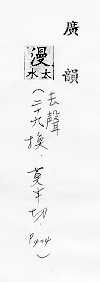 廣韻
漫
太
水
去聲
(二十六換·莫半切 P404)